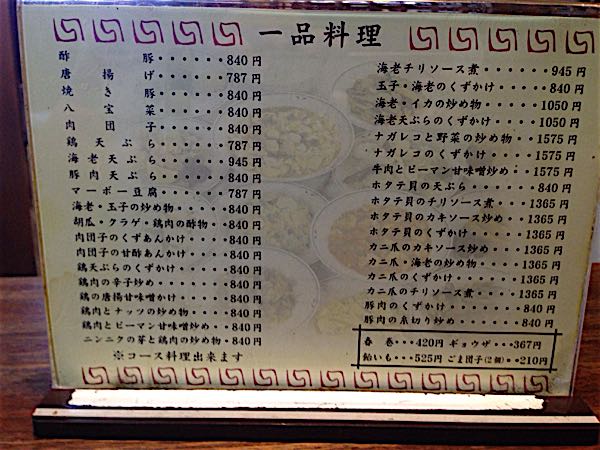 一品料理
酢豚・・・・・・840円
唐揚げ・・・・・・787円
焼き豚・・・・・・840円
八宝菜・・・・・・840円
肉団子・・・・・・840円
鶏天ぷら・・・・・・787円
海老天ぷら・・・・・・945円
豚肉天ぷら・・・・・・840円
マーボー豆腐・・・・・・787円
海老・玉子の炒め物・・・・840円
胡瓜・クラゲ・鶏肉の酢物・・840円
肉団子のくずあんかけ・・・・840円
肉団子の甘酢あんかけ・・・・840円
鶏天ぷらのくずかけ・・・・840円
鶏肉の辛子炒め・・・・・・840円
鶏の唐揚甘味噌かけ・・・・840円
鶏肉とナッツの炒め物・・・・840円
鶏肉とピーマン甘味噌炒め・・840円
ニンニクの芽と鶏肉の炒め物・・840円
※コース料理出来ます
海老チリソース煮・・・・・・945円
玉子・海老のくずかけ・・・・840円
海老・イカの炒め物・・・・・1050円
海老天ぷらのくずかけ・・・・1050円
ナガレコと野菜の炒め物・・・1575円
ナガレコのくずかけ・・・・・1575円
牛肉とピーマン甘味噌炒め・・1575円
ホタテ貝の天ぷら・・・・・・840円
ホタテ貝のチリソース煮・・・1365円
ホタテ貝のカキソース炒め・・1365円
ホタテ貝のくずかけ・・・・・1365円
カニ爪のカキソース炒め・・・1365円
カニ爪・海老の炒め物・・・・1365円
カニ爪のくずかけ・・・・・・1365円
カニ爪のチリソース煮・・・・1365円
豚肉のくずかけ・・・・・・・840円
豚肉の糸切り炒め・・・・・・840円
春巻・・・420円 ギョウザ・・・367円
飴いも・・・525円 ごま団子(2個)・・210円